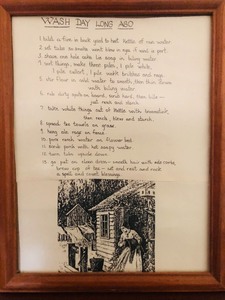 WASH DAY LONG AGO
1. bild a fire in back yard to het kettle of rain water.
2. set tubs so smoke wont blow in eyes if wind is pert.
3. shave one hole cake lie soap in biling water.
4. sort things, make three piles, 1 pile white,
1 pile cullert, 1 pile work britches and rags.
5. stir flour in cold water to smooth, then thin down
with biling water.
6. rub dirty spots on board, scrub hard, then bile -
just rench and starch.
7. take white things out of kettle with broomstick,
then rench, blew and starch.
8. spread tee towels on grass.
9. hang ole rags on fence.
10. pore rench water on flower bed.
11. scrub porch with hot soapy water.
12. turn tubs upside down.
13. go put on clean dress - smooth hair with side combs,
brew cup of tee - set and rest and rock
a spell and count blessings.